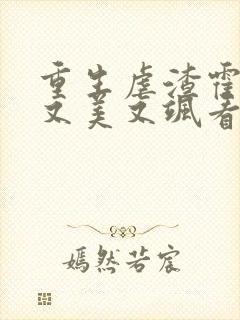 重生虐渣霍
又美又飒者
嫣然若宸